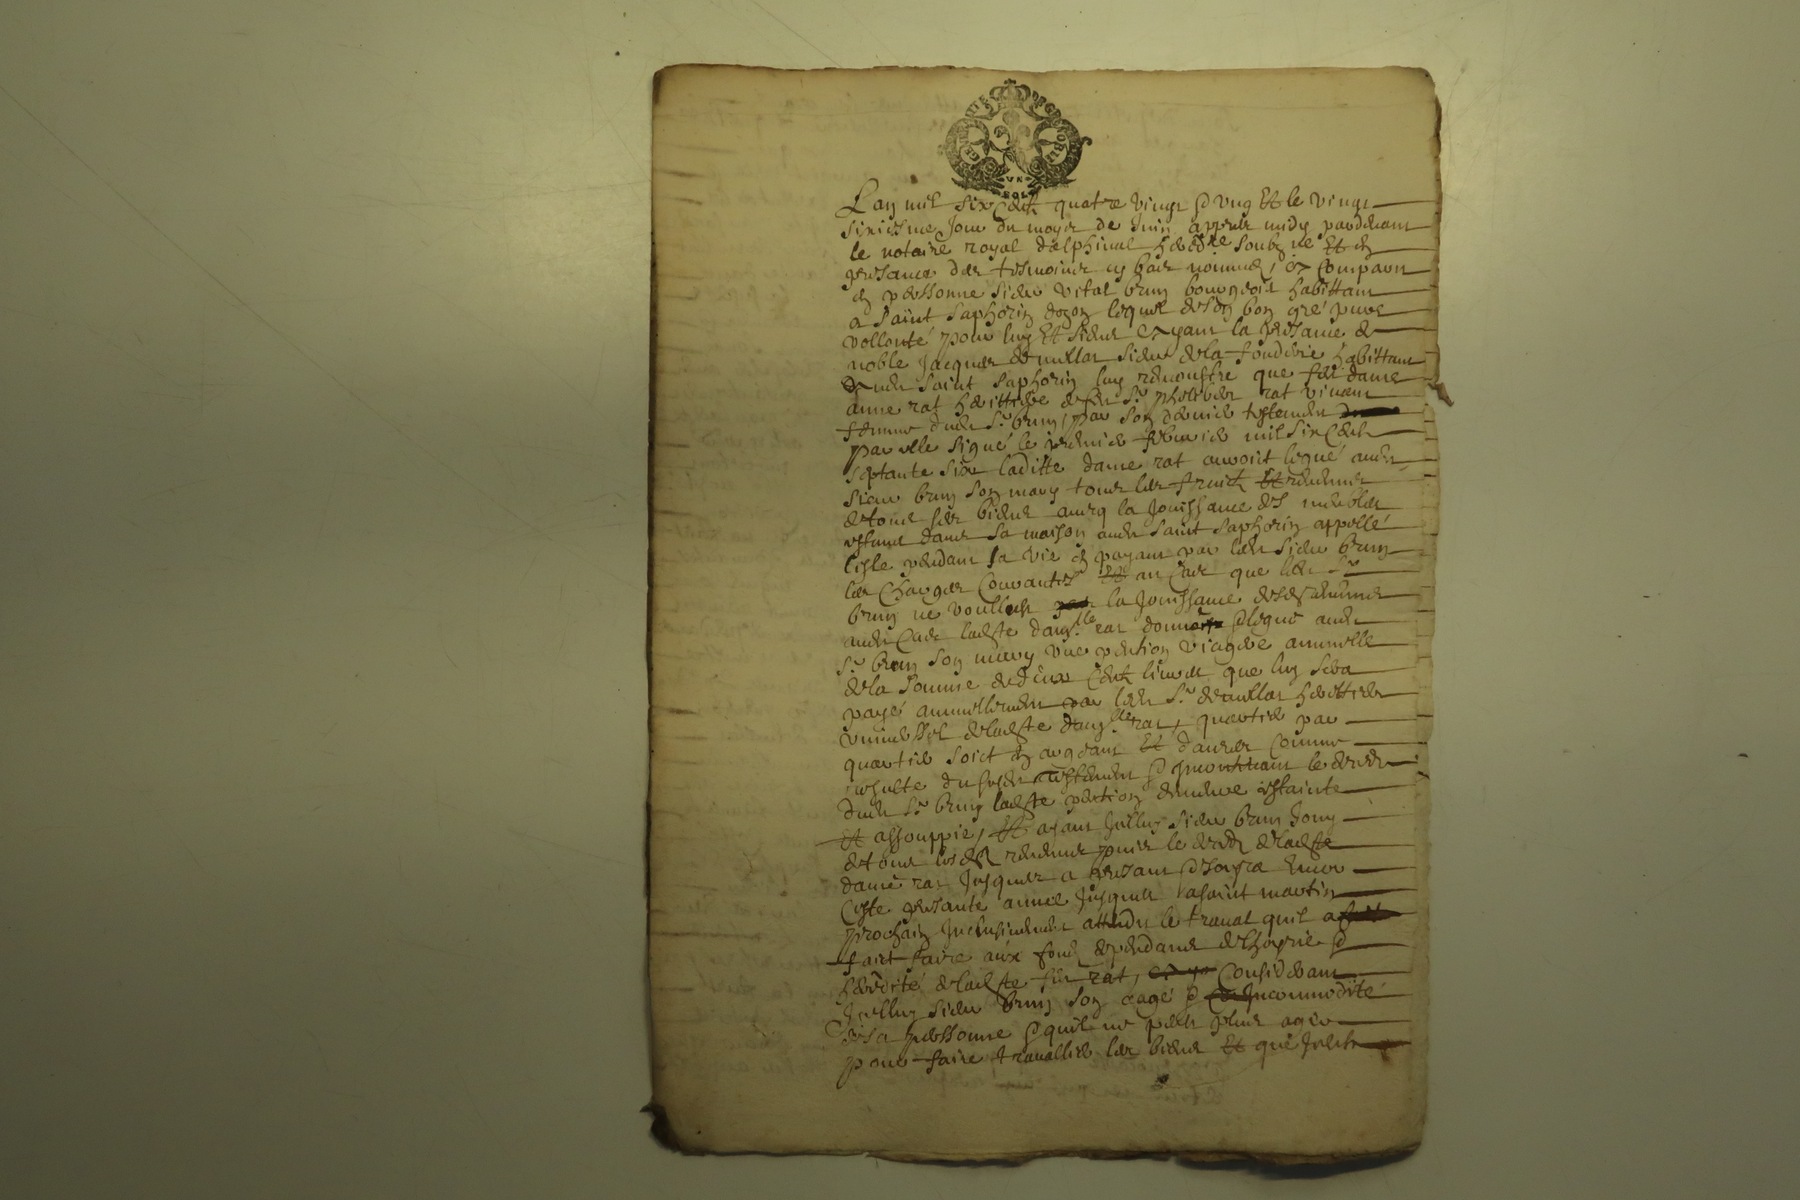 GENERALITE DE GRENOBLE
UN SOL
Lan mil six Centz quatre vingt & ung Et le vingt
sixiesme Jour du moys de Juin apprès midy pardevant
le notaire royal dalphinal soubzne Et en
presance des tesmoins cy bas nommés, Comparu
en personne sieur vital brun bourgeois habittant
a Saint Saphorin dozon lequel de son bon gré pure
vollonté pour luy Et siens la presance de
noble Jacques sieur de la fonderie habittant
audit Saint Saphorin luy remonstre que feu dame
anne rat herittiere de feu sr rat vivant
femme dudit sr brun, par son dernier testament
par elle signé le premier febvrier mil six Cents
septante six laditte dame rat auroit legué audit
sieur brun son mary tous les fruitz Et revenus
de tous ses biens avecq la Jouissance des meubles
estans dans sa maison audit Saint Saphorin appellé
lisle pendant sa vie en payant par ledit sieur brun
les Charges Courantes Et au Cas que ledit sr
brun ne voullust la Jouissance desdes revenus
audit Cas ladste damlle rat donne & legue audit
sr brun son mary une pention viagere annuelle
de la somme de deux Centz livres que luy sera
payé annuellement par ledit sr heritier
universel de ladste damlle rat, quartier par
quartier soict en argeant Et danrées Comme
resulte dudit testament & le deces
dudit sr brun ladste pention demeure estainte
Et assouppie, Et ayant Icelluy sieur brun Jouy
de tous lesds revenus puis le deces de ladste
dame rat Jusques a presant
Ceste presante année Jusques a saint martin
prochain Inclusivement attendu le travail quil a
faict faire aux fondz dependans de lhoyrie &
heredité de ladste feu rat, Considerant
Icelluy sieur brun son eage & Incommodité
de sa personne & quil ne peut plus agir
pour faire travallier les biens Et que